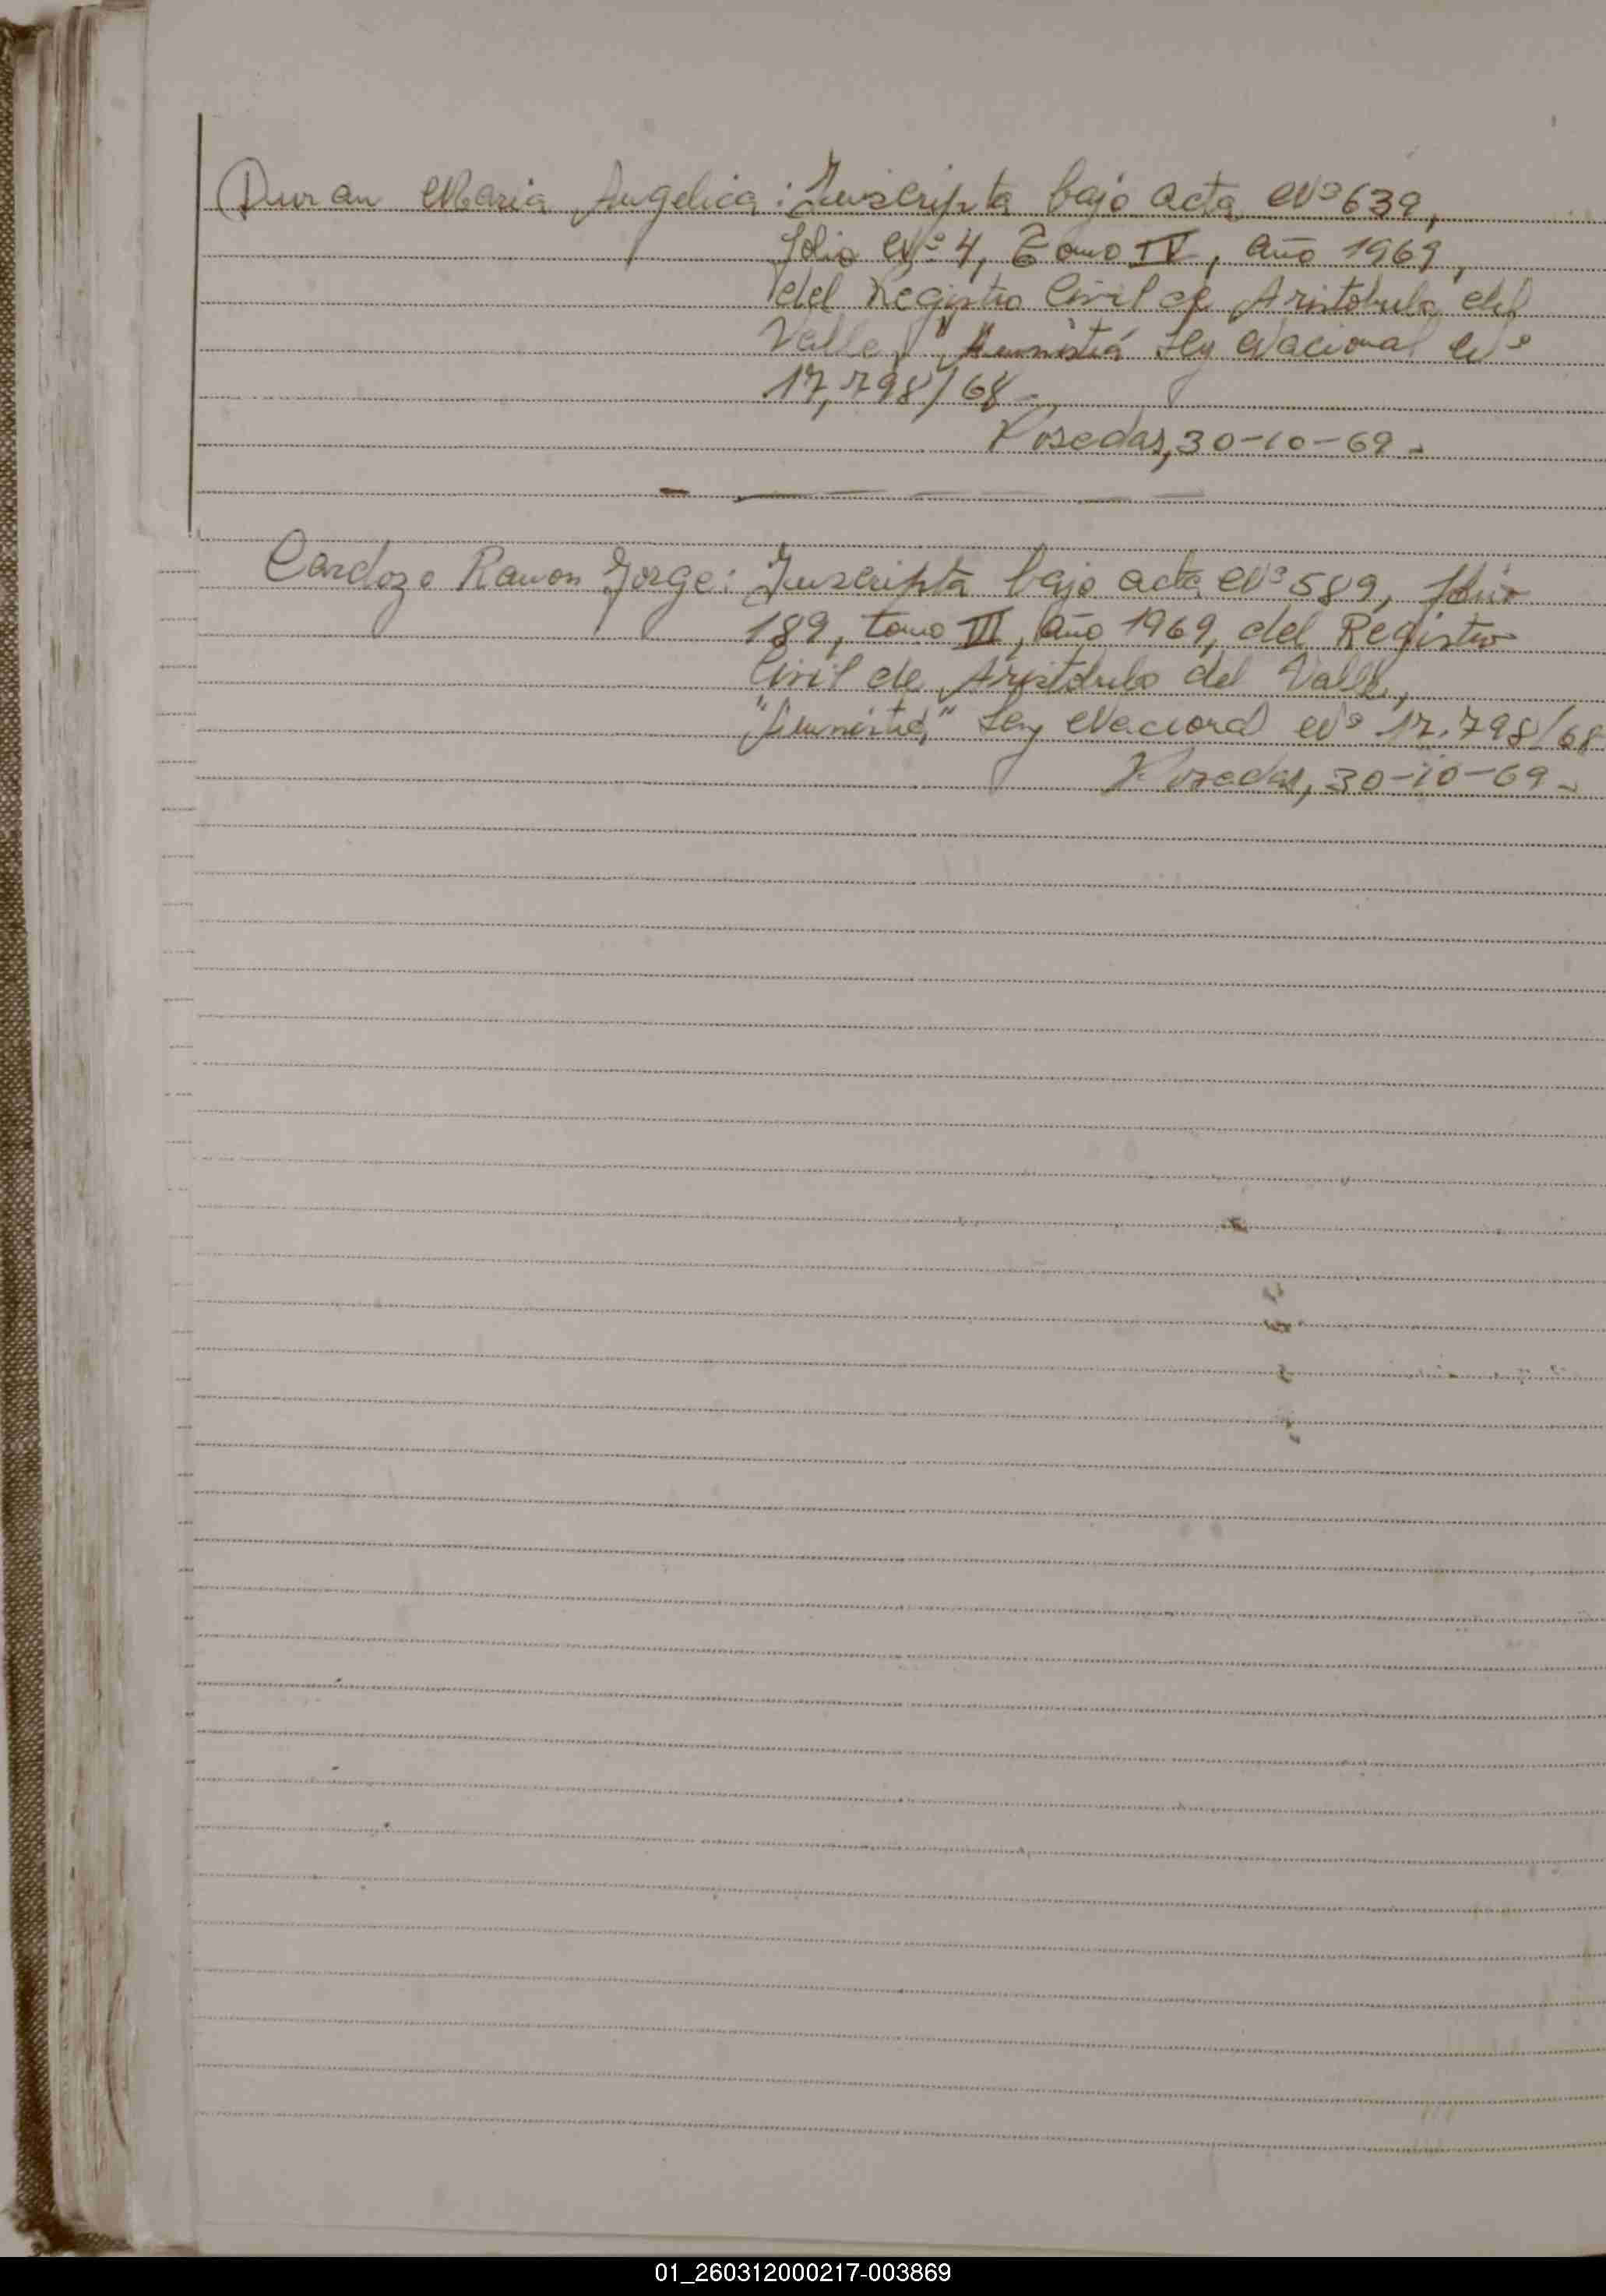 Duran Maria Angelica: Inscripta bajo acta Nº 639,
folio Nº 4, Tomo IV, año 1969,
del Registro Civil de Aristobulo del
Valle, "Amnistía" Ley Nacional Nº
17,798/68 -
Posadas, 30-10-69 -
Cardozo Ramon Jorge: Inscripta bajo acta Nº 589, folio
189, tomo III, año 1969, del Registro
Civil de Aristobulo del Valle,
"Amnistía" Ley Nacional Nº 17.798/68
Posadas, 30-10-69 -
01_260312000217-003869